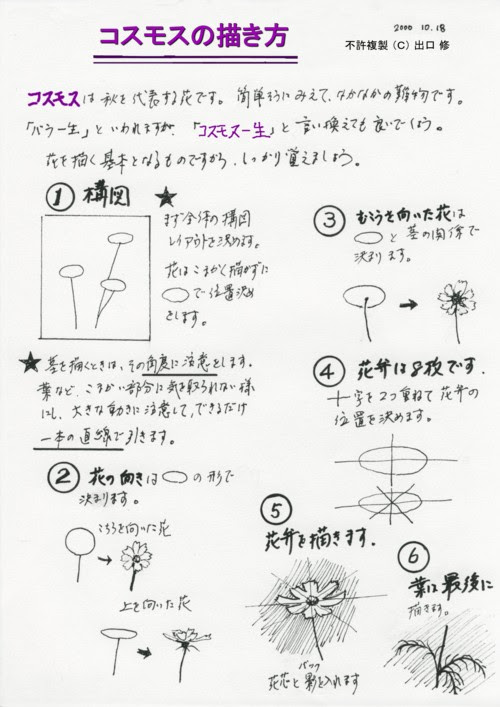 2000 10.18
コスモスの描き方
不許複製 (C) 出口 修
コスモスは秋を代表する花です。簡単そうにみえて、なかなかの難物です。
「バラ一生」といわれますが、「コスモス一生」と言い換えても良いでしょう。
花を描く基本となるものですから、しっかり覚えましょう。
① 構図 ★
まず全体の構図
レイアウトを決めます。
花はこまかく描かずに
○で位置決め
をします。
★ 茎を描くときは、その角度に注意をします。
葉など、こまかい部分に気を取られない様
にし、大きな動きに注意して、できるだけ
一本の直線で引きます。
② 花の向きは○の形で
決まります。
こちらを向いた花
上を向いた花
③ むこうを向いた花は
○と茎の関係で
決まります。
④ 花弁は8枚です.
十字を2つ重ねて花弁の
位置を決めます。
⑤
花弁を描きます.
バック
花芯と影を入れます
⑥
葉は最後に
描きます。